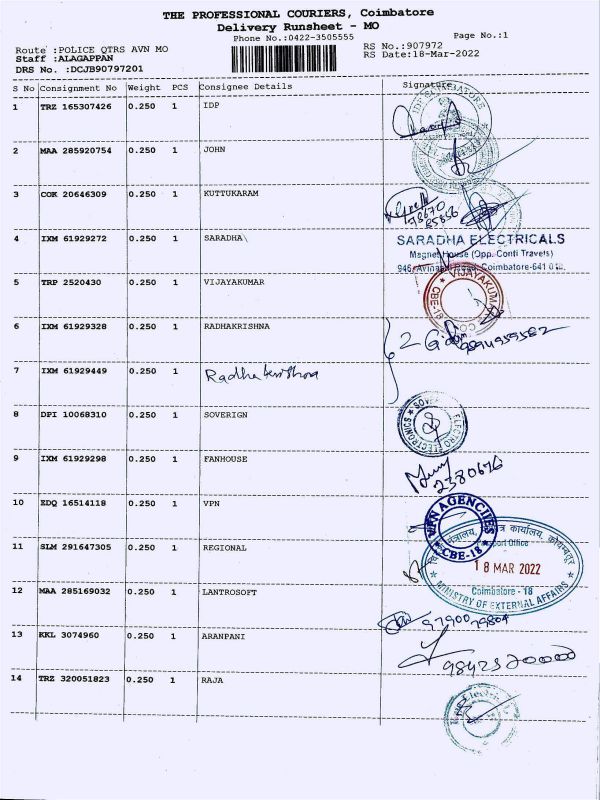 THE PROFESSIONAL COURIERS, Coimbatore
Delivery Runsheet - MO
Phone No.:0422-3505555
Page No.:1
Route :POLICE QTRS AVN MO
RS No.:907972
Staff :ALAGAPPAN
RS Date:18-Mar-2022
DRS No. :DCJB90797201
S No Consignment No Weight PCS Consignee Details Signature
1 TRZ 165307426 0.250 1 IDP
2 MAA 285920754 0.250 1 JOHN
3 COK 20646309 0.250 1 KUTTUKARAM
4 IXM 61929272 0.250 1 SARADHA\
SARADHA ELECTRICALS
Magnet House (Opp. Conti Travels)
946, Avinashi Road, Coimbatore-641 018.
5 TRP 2520430 0.250 1 VIJAYAKUMAR
VIJAYAKUMAR
CBE-18
6 IXM 61929328 0.250 1 RADHAKRISHNA
2
7 IXM 61929449 0.250 1 Radhakrishna
8 DPI 10068310 0.250 1 SOVERIGN
ELECTRONICS
9 IXM 61929298 0.250 1 FANHOUSE
2380676
10 EDQ 16514118 0.250 1 VPN
VPN AGENCIES
CBE-18
11 SLM 291647305 0.250 1 REGIONAL
कार्यालय, कोयम्बटूर
Passport Office
18 MAR 2022
Coimbatore - 18
MINISTRY OF EXTERNAL AFFAIRS
12 MAA 285169032 0.250 1 LANTROSOFT
13 KKL 3074960 0.250 1 ARANPANI
14 TRZ 320051823 0.250 1 RAJA